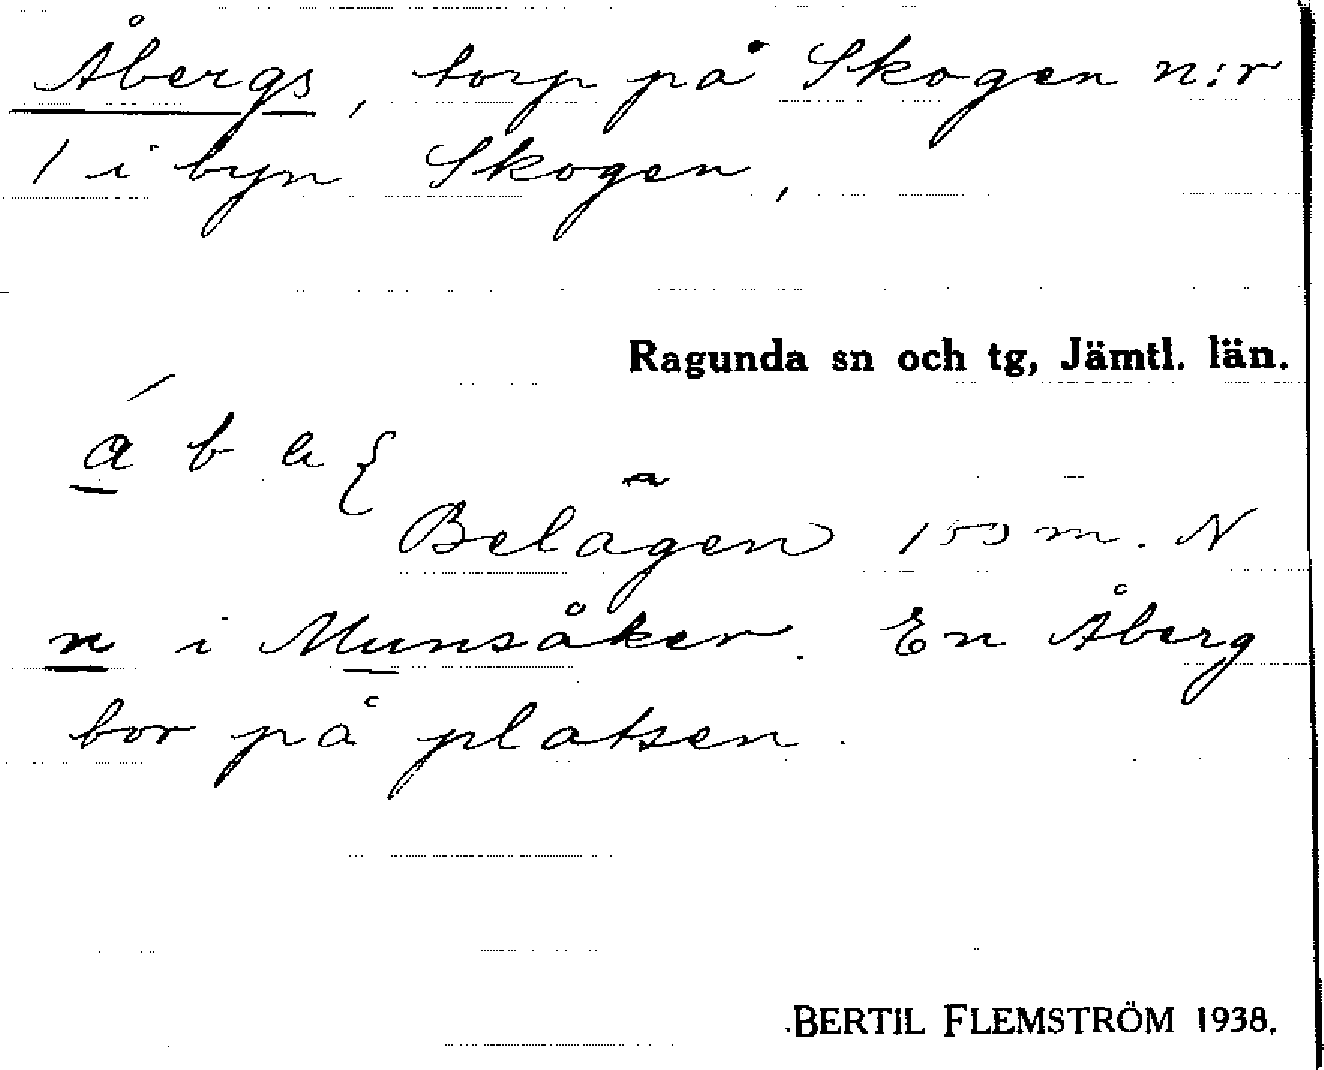 Åbergs, torp på Skogen n:r
1 i byn Skogen,
Ragunda sn och tg, Jämtl. län.
a b
Belägen 150 m. N
n i Munsåker. En Åberg
bor på platsen.
BERTIL FLEMSTRÖM 1938.